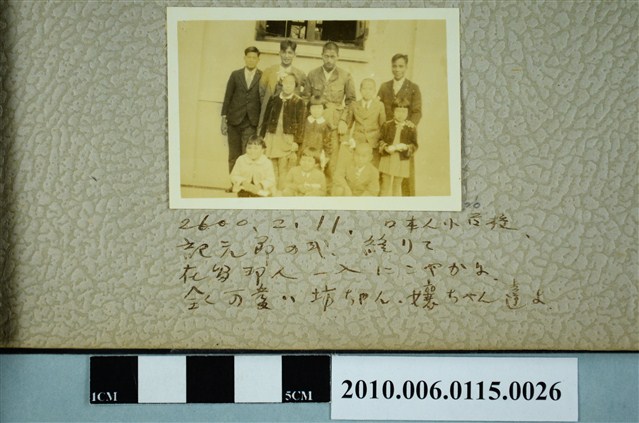 2600.2.11. 日本人小学校、
紀元節の式、終りて
在留邦人一入にこやかよ、
全く可愛い坊ちゃん、嬢ちゃん達よ、
1CM
5CM
2010.006.0115.0026